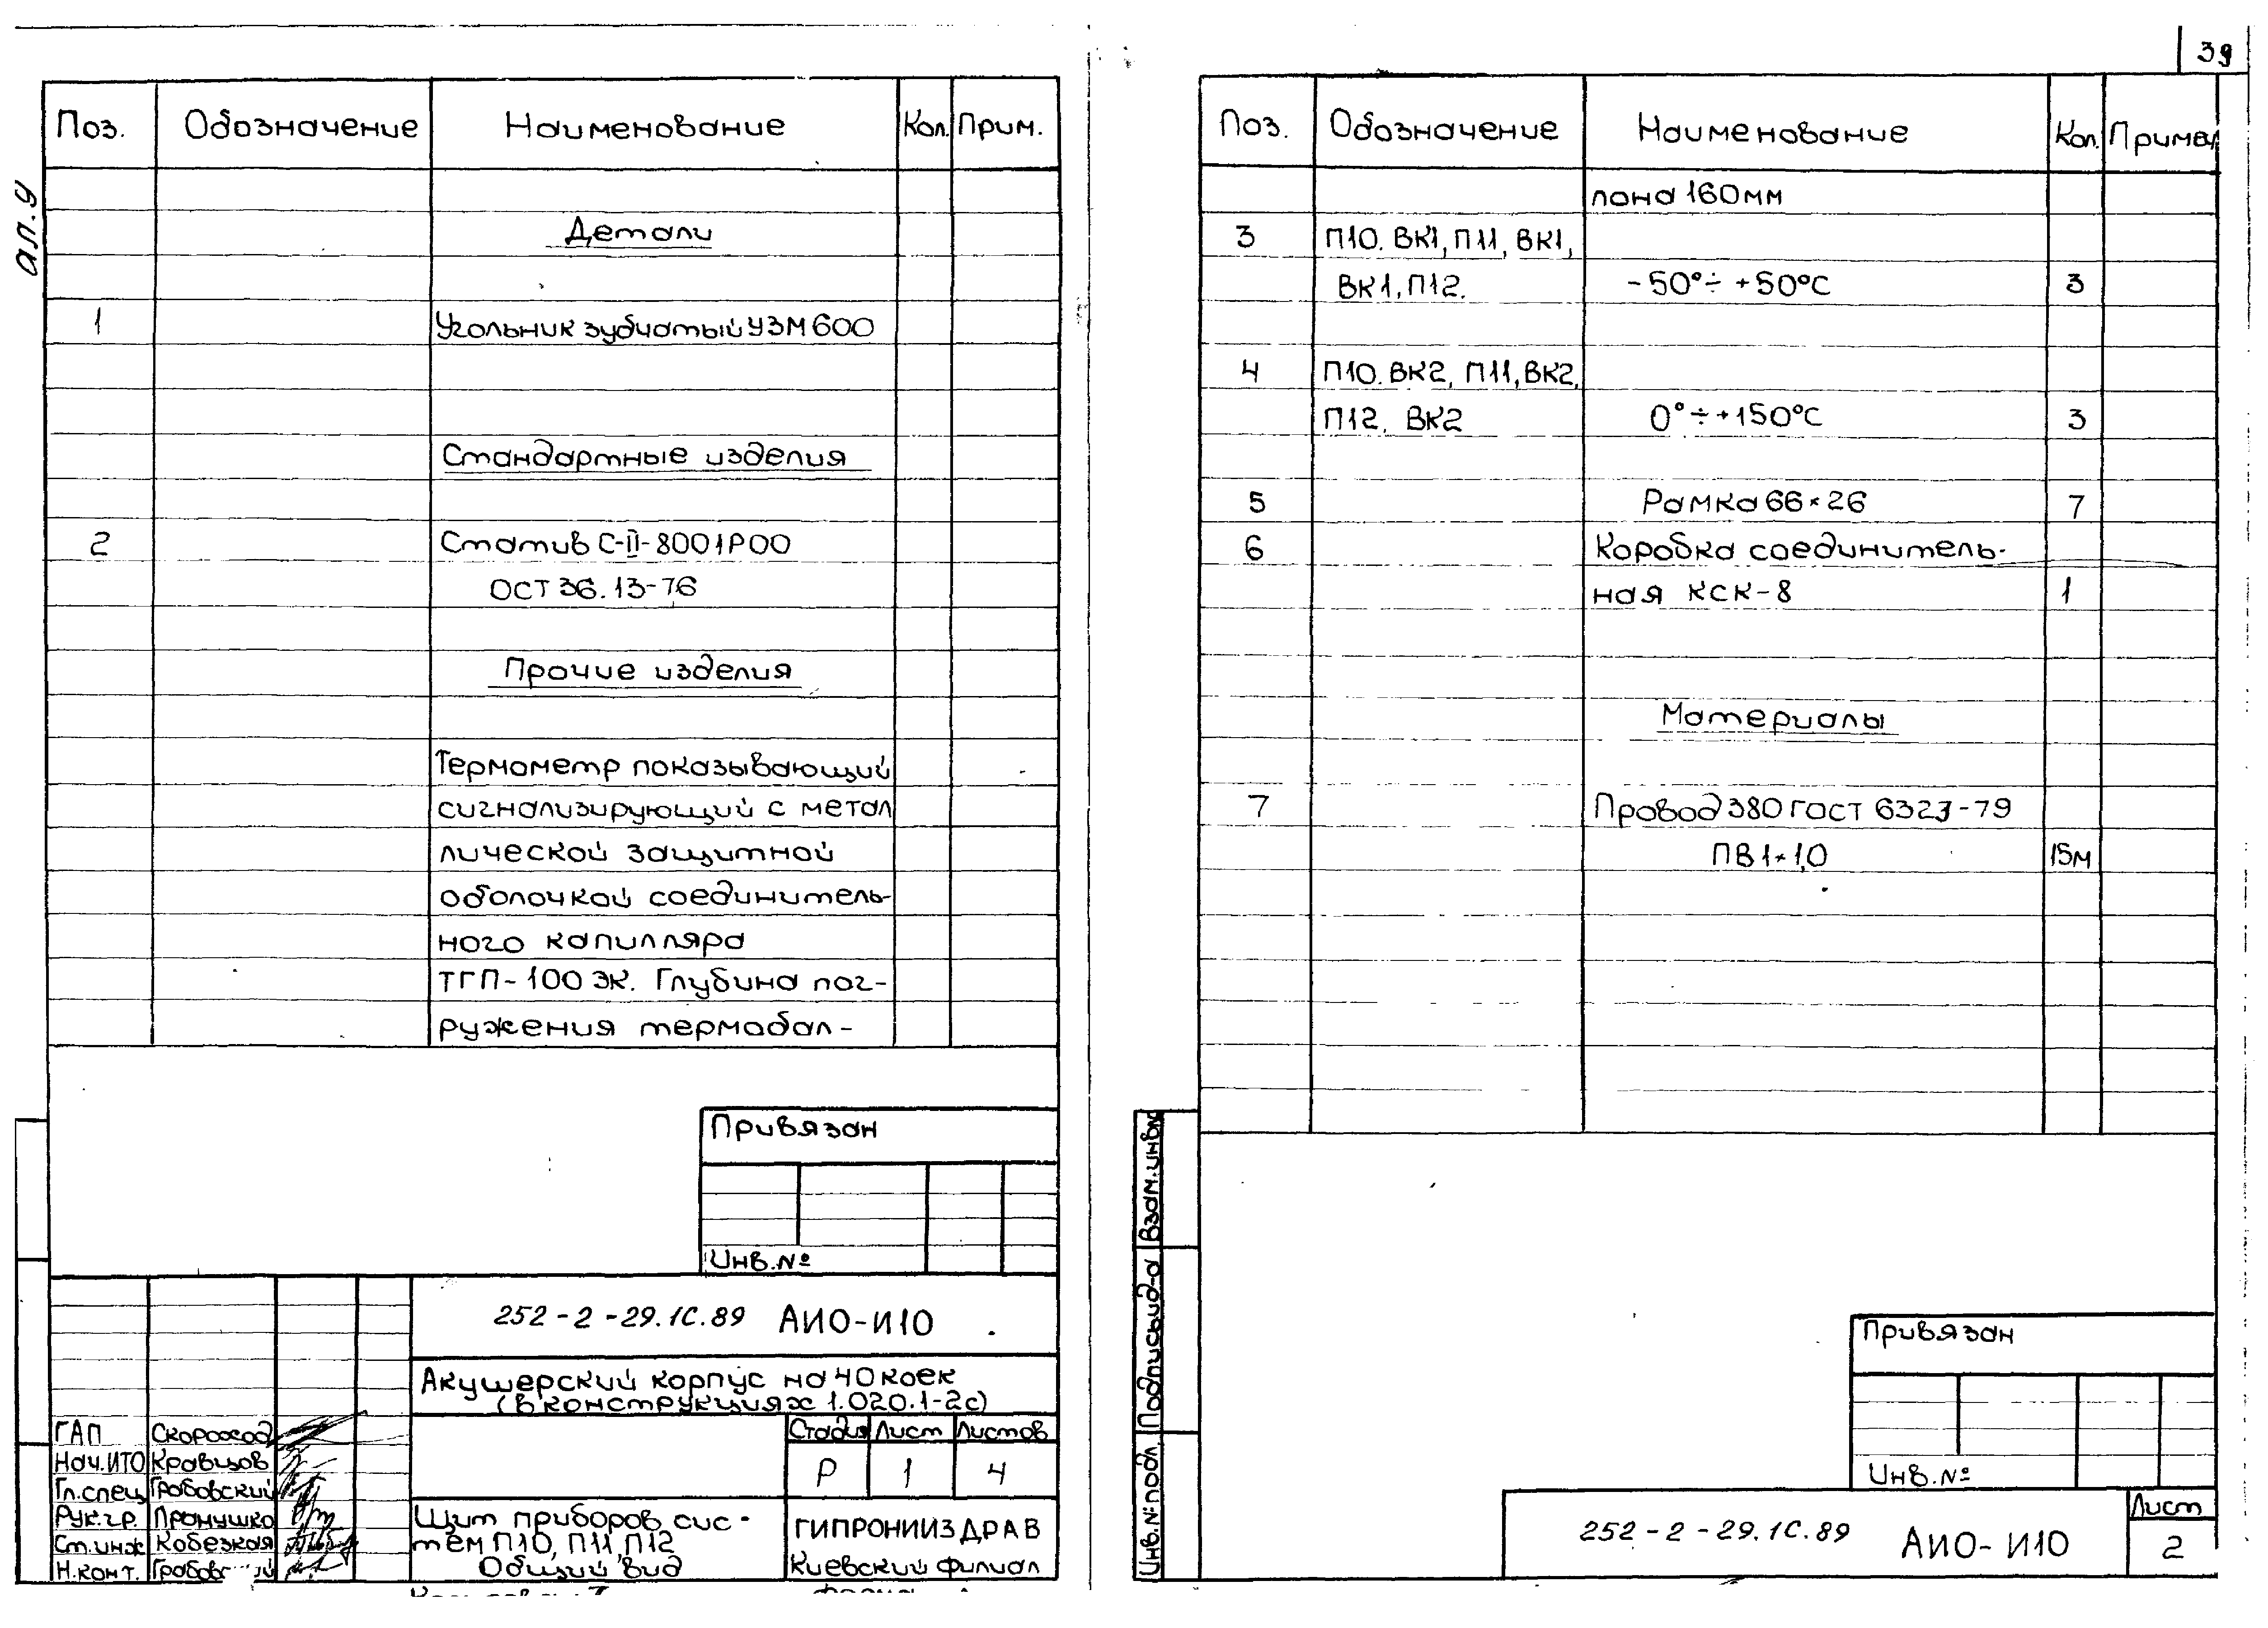 39
ал.9
Поз. Обозначение Наименование Кол. Прим.
Детали
1 Угольник зубчатый УЗМ600
Стандартные изделия
2 Статив С-II-8001Р00
ОСТ 36.13-76
Прочие изделия
Термометр показывающий
сигнализирующий с метал
лической защитной
оболочкой соединитель-
ного капилляра
ТГП-100ЭК. Глубина пог-
ружения термобал-
Привязан
Инв.№
252-2-29.1С.89 АИО-И10
Акушерский корпус на 40 коек
(в конструкциях 1.020.1-2с)
ГАП Скороход
Нач.ИТО Кравцов
Гл.спец Грабовский
Рук.гр. Пронушко
Ст.инж Кобезкая
Н.конт.
Стадия Лист Листов
Р 1 4
Щит приборов сис-
тем П10, П11, П12
Общий вид
ГИПРОНИИЗДРАВ
Киевский филиал
Поз. Обозначение Наименование Кол. Примеч
лона 160мм
3 П10. ВК1, П11, ВК1,
ВК1, П12. -50°÷ +50°С 3
4 П10. ВК2, П11, ВК2,
П12. ВК2 0°÷+150°С 3
5 Рамка 66×26 7
6 Коробка соединитель-
ная КСК-8 1
Материалы
7 Провод 380 ГОСТ 6323-79
ПВ1×1,0 15м
Взам.инв№
Подпись и д-а
Инв.№подл.
Привязан
Инв.№
252-2-29.1С.89 АИО-И10
Лист
2